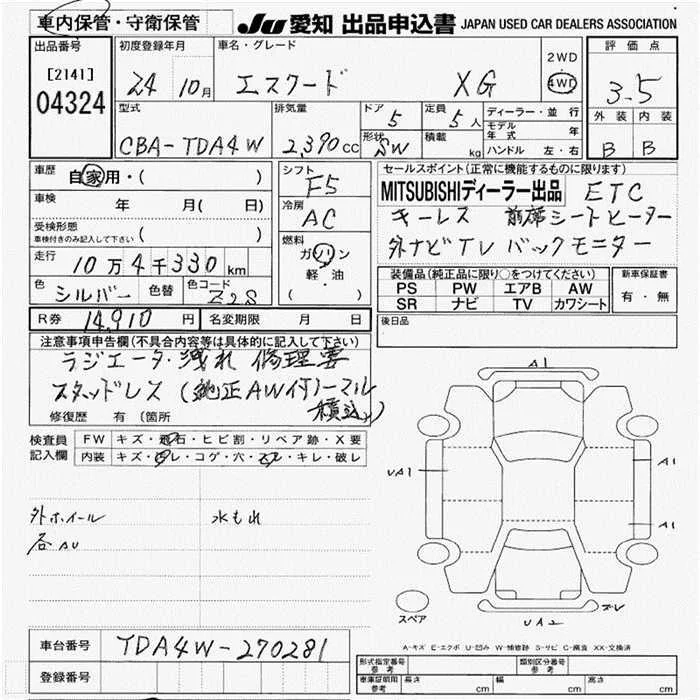 車内保管・守衛保管
JU 愛知 出品申込書 JAPAN USED CAR DEALERS ASSOCIATION
出品番号
[2141]
04324
初度登録年月
24 10月
車名・グレード
エスクード XG
2WD
4WD
評価点
3.5
外装 内装
B B
型式
CBA-TDA4W
排気量
2,390cc
ドア 5
形状 SW
定員 5人
積載 kg
ディーラー・並行
モデル年式 年
ハンドル 左・右
車歴
自家用・( )
車検
年 月( 日)
受検形態
車検付きのみ記入して下さい ( )
走行
10万4千330km
色
シルバー
色替
色コード
Z2S
シフト
F5
冷房
AC
燃料
ガソリン
軽・油
( )
セールスポイント(正常に機能するものに限ります)
MITSUBISHIディーラー出品 ETC
キーレス 前席シートヒーター
外ナビTV バックモニター
装備品(純正品に限り○をつけてください)
PS PW エアB AW
SR ナビ TV カワシート
新車保証書
有・無
R券 14,910円
名変期限 月 日
後日品
注意事項申告欄(不具合内容等は具体的に記入して下さい)
ラジエータ・洩れ 修理要
スタッドレス(純正AW付ノーマル
積込み)
修復歴 有 〔箇所
検査員
記入欄
FW キズ・飛石・ヒビ割・リペア跡・X要
内装 キズ・汚レ・コゲ・穴・スレ・キレ・破レ
外ホイール 水もれ
各AU
A1
UA1
A1
A1
UA2
スペア
A-キズ E-エクボ U-凹み W-補修跡 S-サビ C-腐食 XX-交換済
車台番号
TDA4W-270281
登録番号
形式指定番号
参考
類別区分番号
参考
車庫証明用
参考
長さ cm 幅 cm 高さ cm